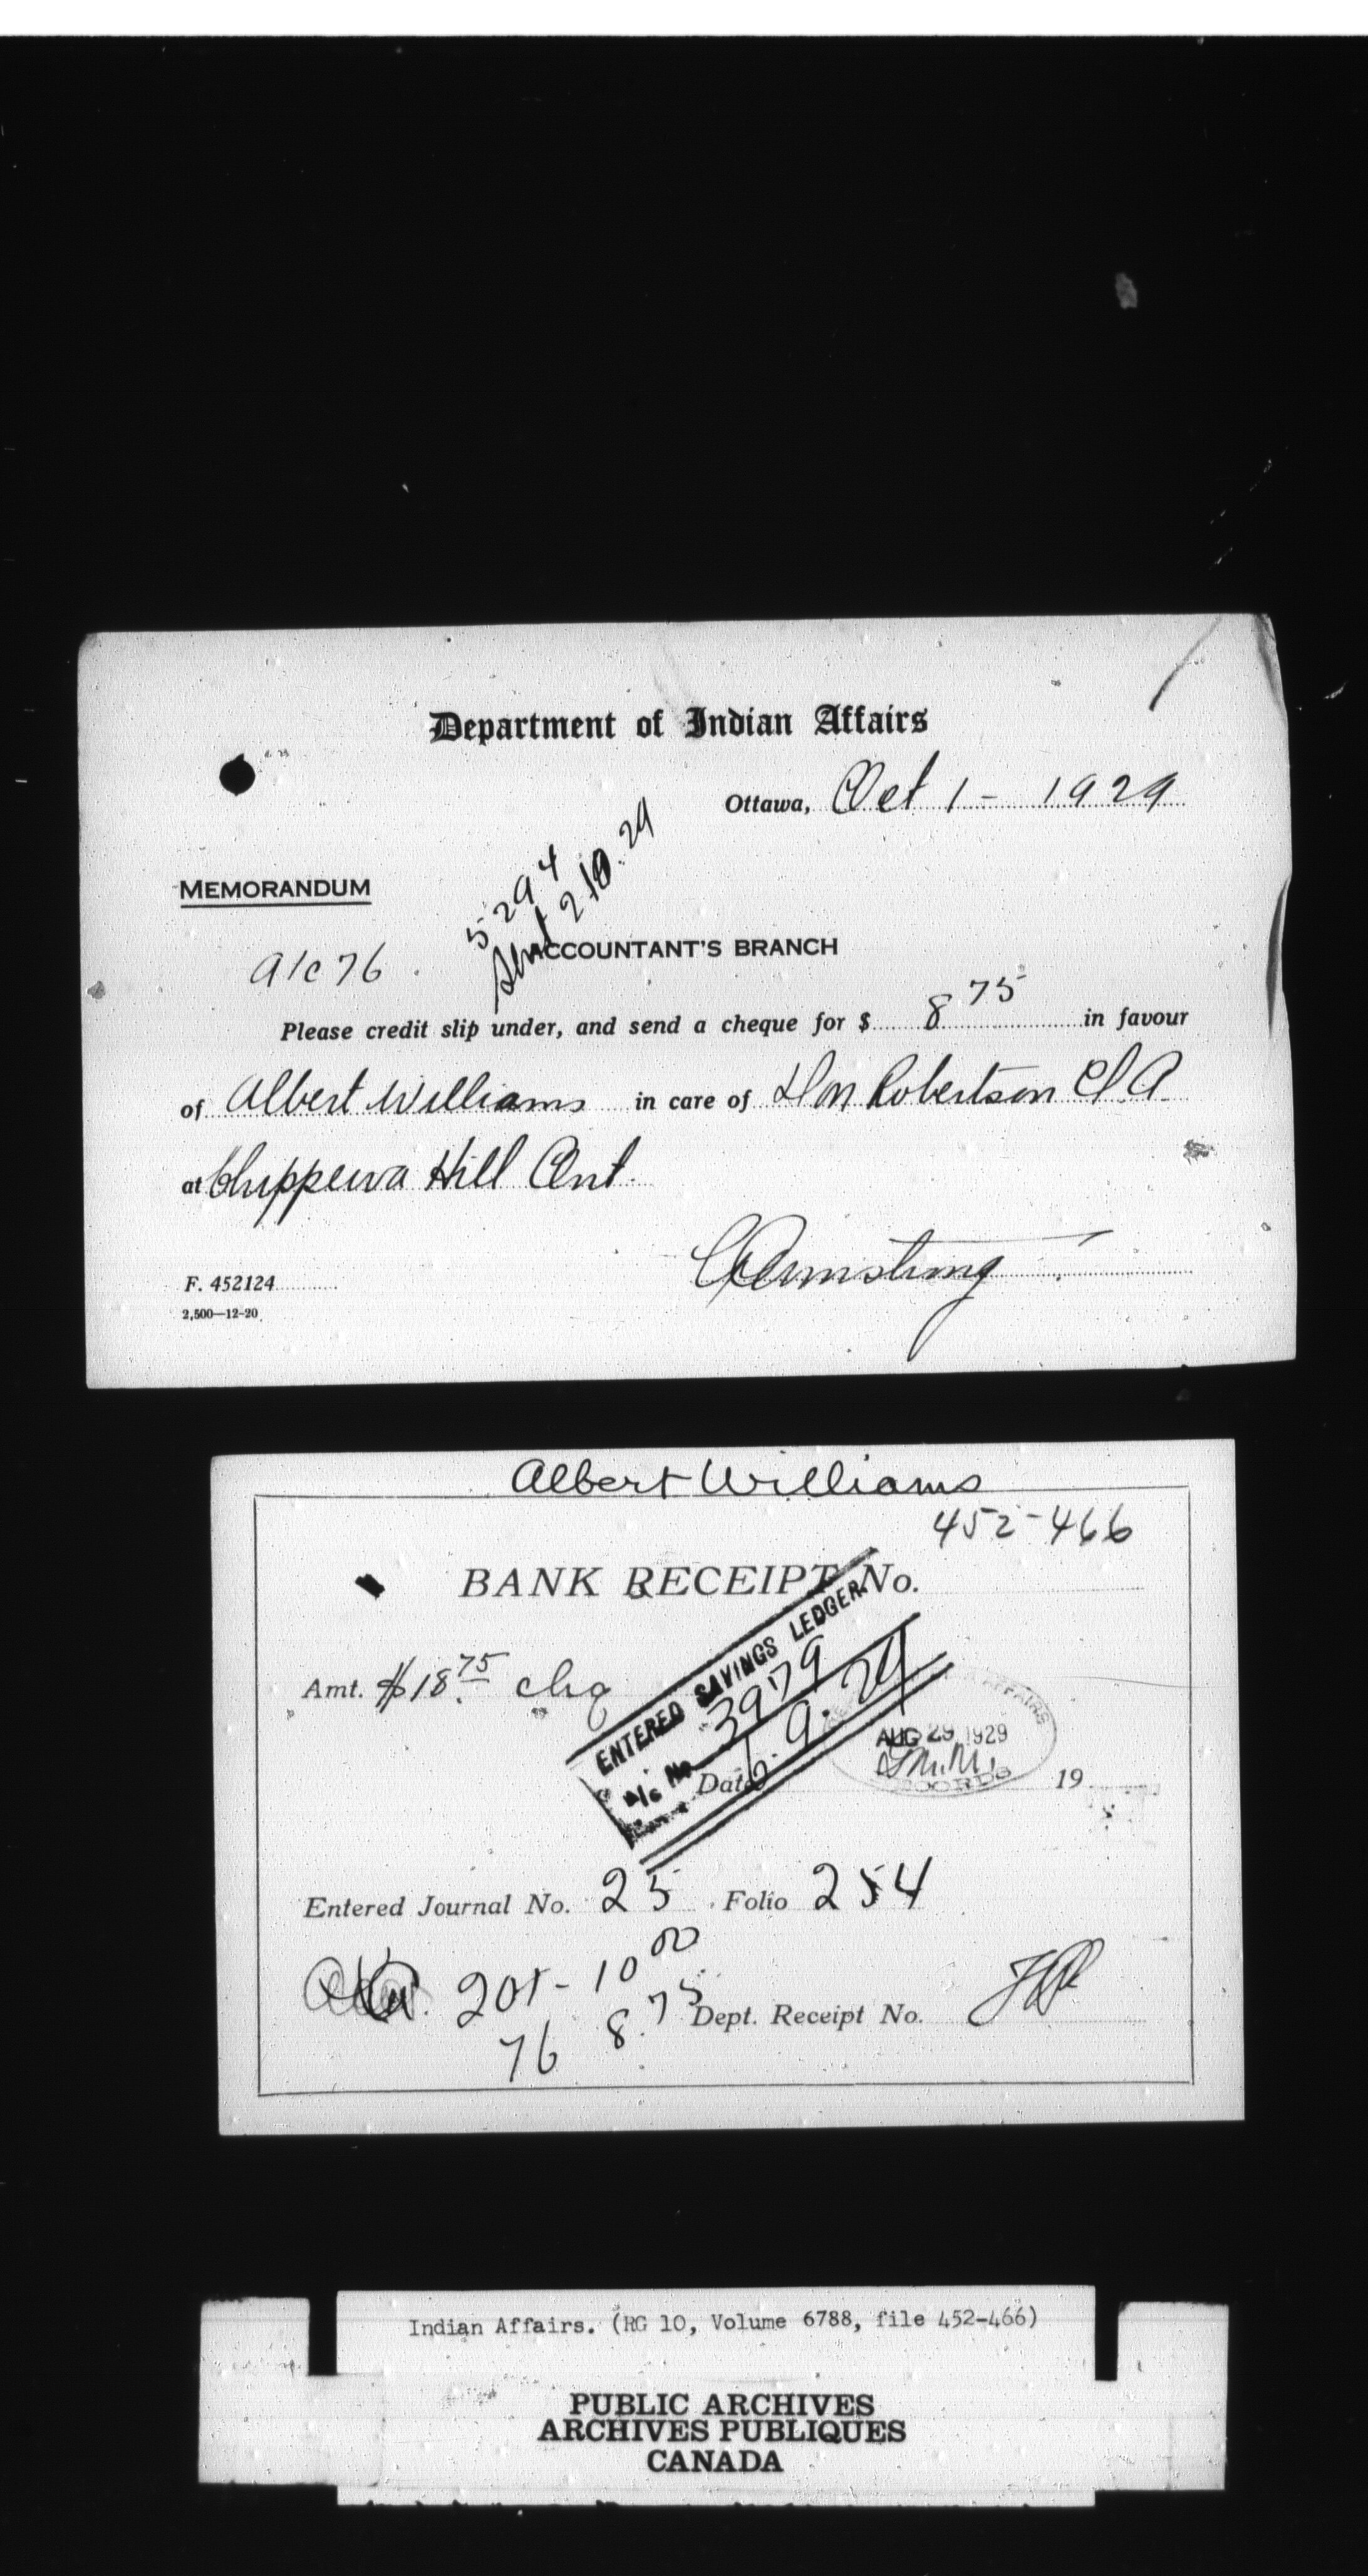 Department of Indian Affairs
Ottawa, Oct 1 - 1929
MEMORANDUM
5294
Sent 2.10.29
ACCOUNTANT'S BRANCH
a/c 76
Please credit slip under, and send a cheque for $ 8 75 in favour
of Albert Williams in care of Robertson
at Chippewa Hill Ont.
Armstrong
F. 452124
2,500—12-20
Albert Williams
452-466
BANK RECEIPT No.
Amt. $18.75 chq
ENTERED SAVINGS LEDGER
A/c No 3979
AFFAIRS
AUG 29 1929
RECORDS
Date 19
Entered Journal No. 25 Folio 254
201 - 10 00
76 8.75
Dept. Receipt No.
Indian Affairs. (RG 10, Volume 6788, file 452-466)
PUBLIC ARCHIVES
ARCHIVES PUBLIQUES
CANADA